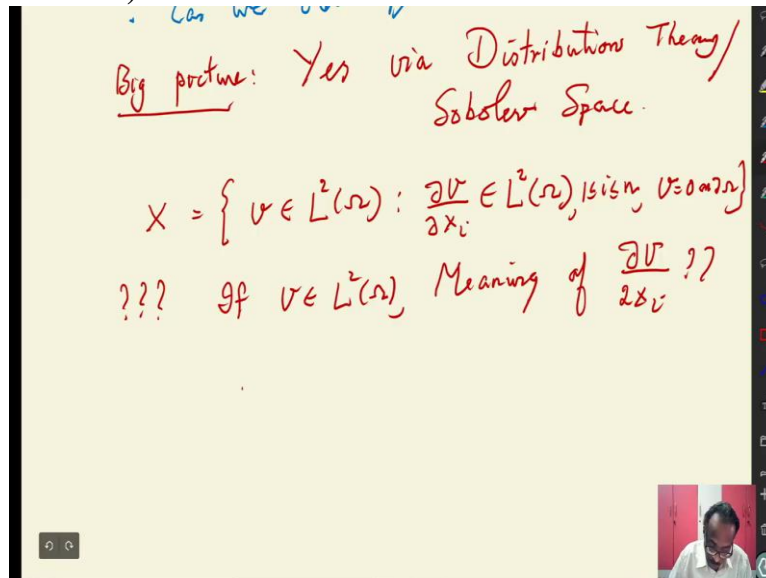 . Can we
Big picture: Yes via Distribution Theory/
Sobolev Space.
X = { v ∈ L²(Ω) : ∂v/∂xᵢ ∈ L²(Ω), 1≤i≤n, v=0 on ∂Ω}
??? If v ∈ L²(Ω), Meaning of ∂v/∂xᵢ ??